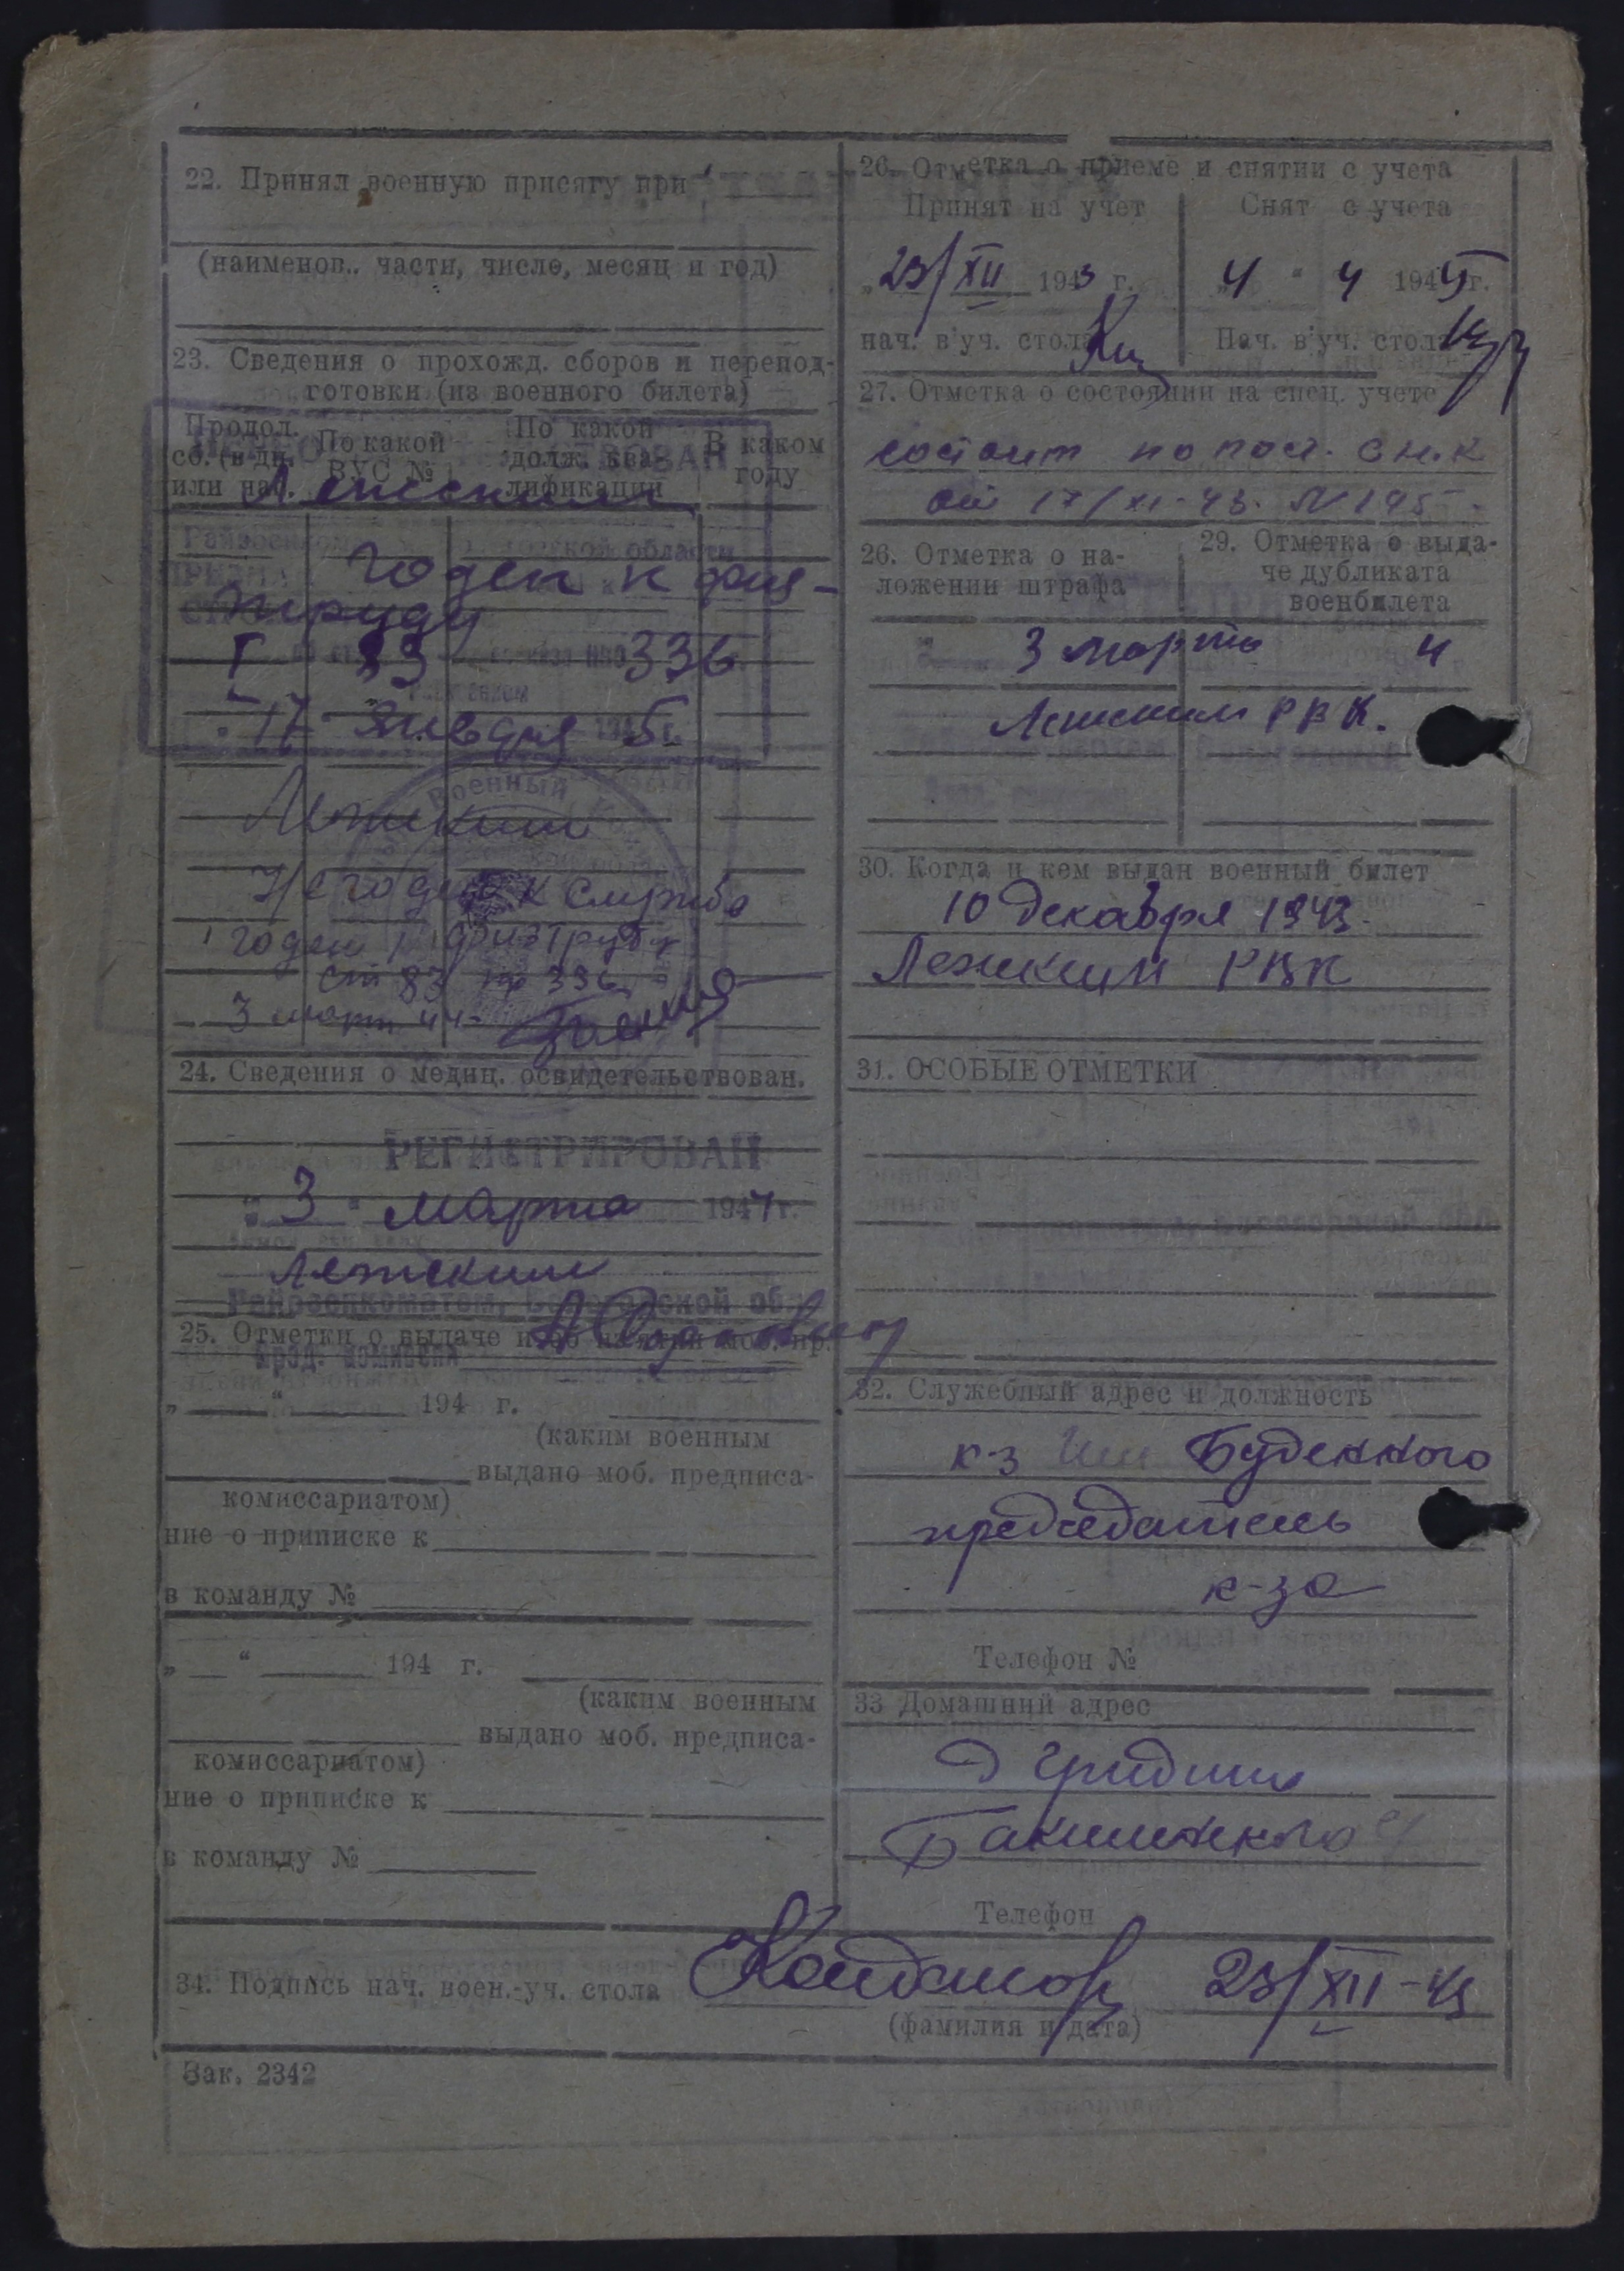 22. Принял военную присягу при
(наименов.. части, число, месяц и год)
23. Сведения о прохожд. сборов и перепод-
готовки (из военного билета)
Продол. сб. (в дн. или нас.
По какой ВУС №
По какой долж. ква- лификации
В каком году
Лежским
Годен к физ-
труду
I 83 336
17 января 5
Лежским
Негоден к службе
годен к физтруду
ст 83 пр 336
3 март 44
24. Сведения о медиц. освидетельствован.
РЕГИСТРИРОВАН
"3" марта 1944 г.
Лежским
Райвоенкоматом, Вологодской об.
25. Отметки о выдаче и об изъятии моб. пр.
Пред. комиссии
„ " 194 г.
(каким военным
выдано моб. предписа-
комиссариатом)
ние о приписке к
в команду №
„ “ 194 г.
(каким военным
выдано моб. предписа-
комиссариатом)
ние о приписке к
в команду №
26. Отметка о приеме и снятии с учета
Принят на учет
Снят с учета
„23/XII 1943 г.
„4 " 4 1945 г.
нач. в'уч. стола
Нач. в'уч. стола
27. Отметка о состоянии на спец. учете
состоит по пост. СНК
от 17/XI-43. N 195
26. Отметка о на-
ложении штрафа
29. Отметка о выда-
че дубликата
военбилета
3 марта 4
Лежским РВК.
30. Когда и кем выдан военный билет
10 декабря 1943
Лежским РВК
31. ОСОБЫЕ ОТМЕТКИ
32. Служебный адрес и должность
к-з Им Буденного
председатель
к-за
Телефон №
33 Домашний адрес
Д Гридино
Телефон
34. Подпись нач. воен.-уч. стола
23/XII-43
(фамилия и дата)
Зак. 2342